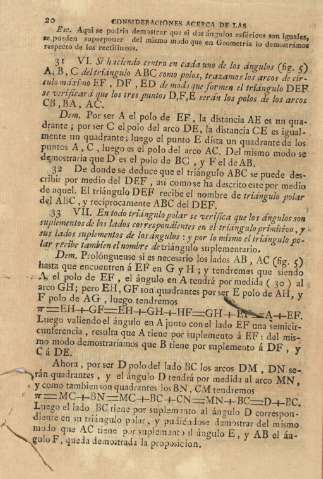 20 CONSIDERACIONES ACERCA DE LAS
Esc. Aqui se podria demostrar que si dos ángulos esféricos son iguales,
se pueden superponer del mismo modo que en Geometría lo demostramos
respecto de los rectilineos.
31 VI. Si haciendo centro en cada uno de los ángulos (fig. 5)
A, B, C del triángulo ABC como polos, trazamos los arcos de cír-
culo máximo EF, DF, ED de modo que formen el triángulo DEF
se verificará que los tres puntos D, F, E serán los polos de los arcos
CB, BA, AC.
Dem. Por ser A el polo de EF, la distancia AE es un qua-
drante; por ser C el polo del arco DE, la distancia CE es igual-
mente un quadrante; luego el punto E dista un quadrante de los
puntos A, C, luego es el polo del arco AC. Del mismo modo se
demostraria que D es el polo de BC, y F el de AB.
32 De donde se deduce que el triángulo ABC se puede des-
cribir por medio del DEF, así como se ha descrito este por medio
de aquel. El triángulo DEF recibe el nombre de triángulo polar
del ABC, y reciprocamente ABC del DEF.
33 VII. En todo triángulo polar se verifica que los ángulos son
suplementos de los lados correspondientes en el triángulo primitivo, y
sus lados suplementos de los ángulos: y por lo mismo el triángulo po-
lar recibe tambien el nombre de triángulo suplementario.
Dem. Prolónguense si es necesario los lados AB, AC (fig. 5)
hasta que encuentren á EF en G y H; y tendremos que siendo
A el polo de EF, el ángulo en A tendrá por medida (30) al
arco GH; pero EH, GF son quadrantes por ser E polo de AH, y
F polo de AG, luego tendremos
π=EH+GF=EH+GH+HF=GH+EF=A+EF.
Luego valiendo el ángulo en A junto con el lado EF una semicir-
cunferencia, resulta que A tiene por suplemento á EF: del mis-
mo modo demostrariamos que B tiene por suplemento á DF, y
C á DE.
Ahora, por ser D polo del lado BC los arcos DM, DN se-
rán quadrantes, y el ángulo D tendrá por medida al arco MN,
y como tambien son quadrantes los BN, CM tendremos
π=MC+BN=MC+BC+CN=MN+BC=D+BC.
Luego el lado BC tiene por suplemento al ángulo D correspon-
diente en su triángulo polar, y pudiéndose demostrar del mismo
modo que AC tiene por suplemento al ángulo E, y AB el án-
gulo F, queda demostrada la proposicion.